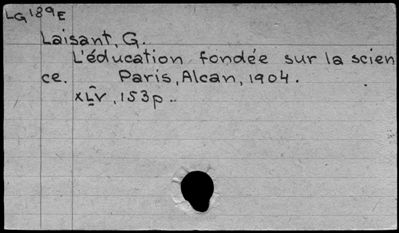 LG189E
Laisant, G.
L'éducation fondée sur la scien
ce. Paris, Alcan, 1904.
XLV, 153p..